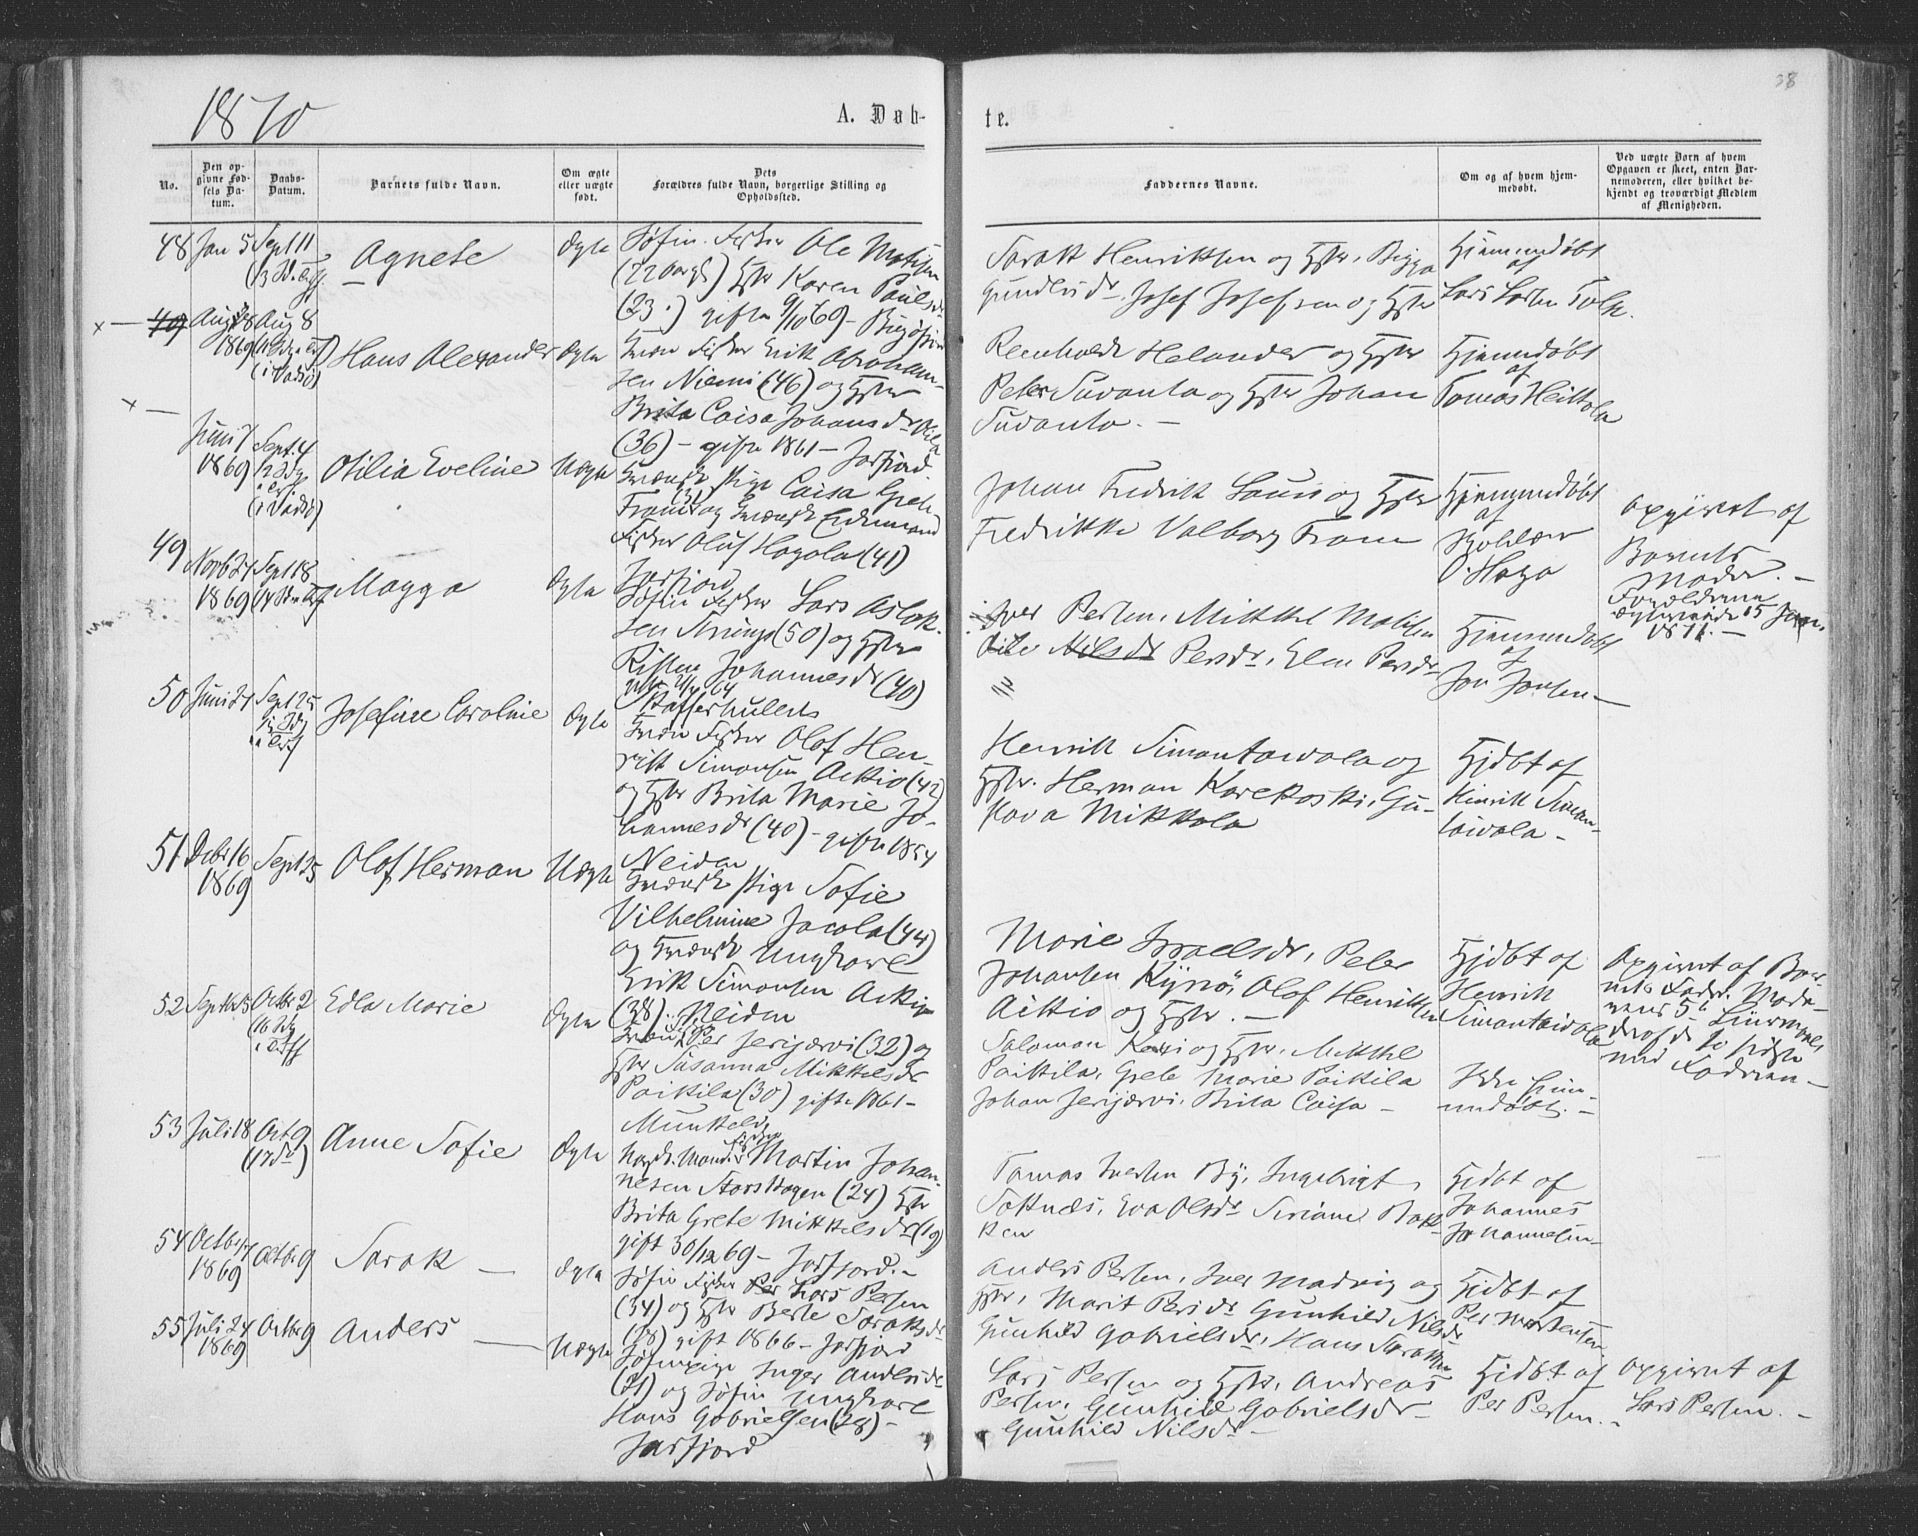 38
1870
A. Døb-
te.
No.
Den op-
givne Fød-
sels Da-
tum.
Daabs-
Datum.
Barnets fulde Navn.
Om ægte
eller uægte
født.
Dets
Forældres fulde Navn, borgerlige Stilling og
Opholdssted.
Faddernes Navne.
Om og af hvem hjem-
medøbt.
Ved uægte Børn af hvem
Opgaven er skeet, enten Bar-
nemoderen, eller hvilket be-
kjendt og troværdigt Medlem
af Menigheden.
48 Jan 5 Sept 11
Agnete
Ægte
Søfin. Fisker Ole Mathisen
(22 ) Hstr Karen Paulsdr
(23 ) gifte 9/10 69 - Bugøfjord
Sarak Henriksen og Hstr, Bigga
Gundersdr. Josef Josefsen og Hstr
Hjemmedøbt
af
Lars Larsen Tolk.
x — 49 Aug 28 Aug 8
1869
(i Vadsø)
Hans Alexander
Ægte
Fisker Erik Abraham-
sen Niemi (46) og Hstr
Brita Caisa Johansdr
(36) - gifte 1861 - Jarfjord
Reinholdt Helander og Hstr
Peter Suvanto og Hstr Johan
Suvanto. —
Hjemmedøbt
af
Tomas Heittola
x —
Juni 7
1869
Sept. 4
(i Vadsø)
Otilia Eveline
Uægte
Svensk Pige Caisa Greta
Fram (31) og Svensk Enkemand
Fisker Oluf Hagola (41)
Jarfjord
Johan Fredrik Lauri og Hstr
Fredrikke Valborg Fram
Hjemmedøbt
af
O. Haga
Opgivet af
Barnets
Moder. —
Forældrene
ægteviede 15 Jan.
1871. —
49 Novb 27 Sept 18
1869
Magga
Ægte
Søfin Fisker Lars Aslak-
sen (50) og Hstr
Risten Johannesdr (40)
Iver Persen, Mikkel Mathisen
Nilsdr Persdr, Elen Persdr
Hjemmedøbt
af
Jon Jonsen —
50 Juni 27 Sept 25
Josefine Caroline
Ægte
Fisker Olof Hen-
rik Simonsen Aikio (42)
og Hstr Brita Marie Jo-
hannesdr (40) - gifte 1854
Neiden
Henrik Simontaival og
Hstr. Herman Karekoski, Gu-
stava Mikkola
Hjdbt af
Hinrik Simon-
taivala —
51 Debr 16 Sept 25
1869
Olof Herman
Uægte
Svensk Pige Sofie
Vilhelmine Jacola (44)
og Svensk Ungkarl
Erik Simonsen Aikio
(38) .. Neiden
Marie Israelsdr, Peter
Johansen Kynsö, Olof Henriksen
Aikio og Hstr. —
Hjdbt af
Henrik
Simontaivola
Opgivet af Bar-
nets Fader. Mode-
rens 5te Leiermaal
deraf de to sidste
med Faderen —
52 Septbr 3 Octbr 2
Edla Marie
Ægte
Per Jerijærvi (32) og
Hstr Susanna Mikkelsdr
Paikila (30) gifte 1861 -
Munkelv
Salomon og Hstr. Mikkel
Paikila, Grete Marie Paikila
Johan Jerijærvi, Brita Caisa —
Ikke hjem-
medøbt. —
53 Juli 18 Oct 9
Anne Sofie
Ægte
Martin Johan-
nesen Storskogen (24) Hstr
Brita Grete Mikkelsdr (19)
gift 30/12 69 - Jarfjord. —
Tomas Iversen By, Ingebrigt
Sotnæs, Eva Olsdr Siriane Bak-
ken
Hjdbt af
Johannes
Johannesen —
54 Octbr 7 Octbr 9
1869
Sarak —
Ægte
Søfin Fisker Per Lars Persen
(34) og Hstr Berte Saraksdr
(28) gift 1866 - Jarfjord
Anders Persen, Iver Madvig og
Hstr, Marit Persdr Gunhild Nilsdr
Gunhild Gabrielsdr, Hans Saraksen
Hjdbt af
Per Mortensen
55 Juli 24 Octbr 9
1869
Anders —
Uægte
Søfinpige Inger Andersdr
(21) og Søfin Ungkarl
Hans Gabrielsen (28) -
Jarfjord
Lars Persen og Hstr, Andreas
Persen, Gunhild Gabrielsdr —
Gunhild Nilsdr —
Hjdbt af
Per Persen. —
Opgivet af
Lars Persen. —